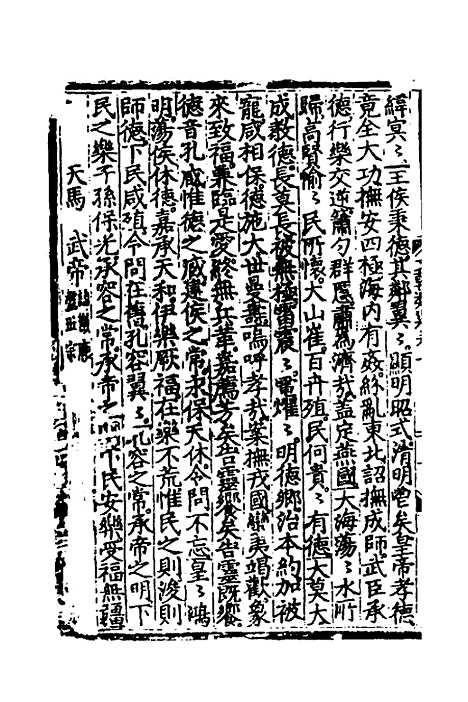 緯冥〻王侯秉德其鄰翼〻顯明昭式清明鬯矣皇帝孝德
竟全大功撫安四極海内有姦紛亂東北詔撫成師武臣承
德行樂交逆簫勺群慝肅為濟哉盖定燕國大海蕩〻水所
歸高賢愉〻民所懷大山崔百卉殖民何貴〻有德大莫大
成教德長莫長被無極雷震〻電燿〻明德鄉治本約加被
寵咸相保德施大世曼壽嗚呼孝哉案撫我國蠻夷竭歡象
來致福兼臨是愛終無兵革嘉薦芳矣告靈饗矣告靈既饗
德音孔臧惟德之臧建侯之常承保天休令問不忘皇〻鴻
明蕩侯休德嘉承天和伊樂厥福在樂不荒惟民之則浚則
師德下民咸殖令問在舊孔容翼〻孔容之常承帝之明下
民之樂子孫保光承容之常承帝之 下民安樂受福無疆
天馬 武帝